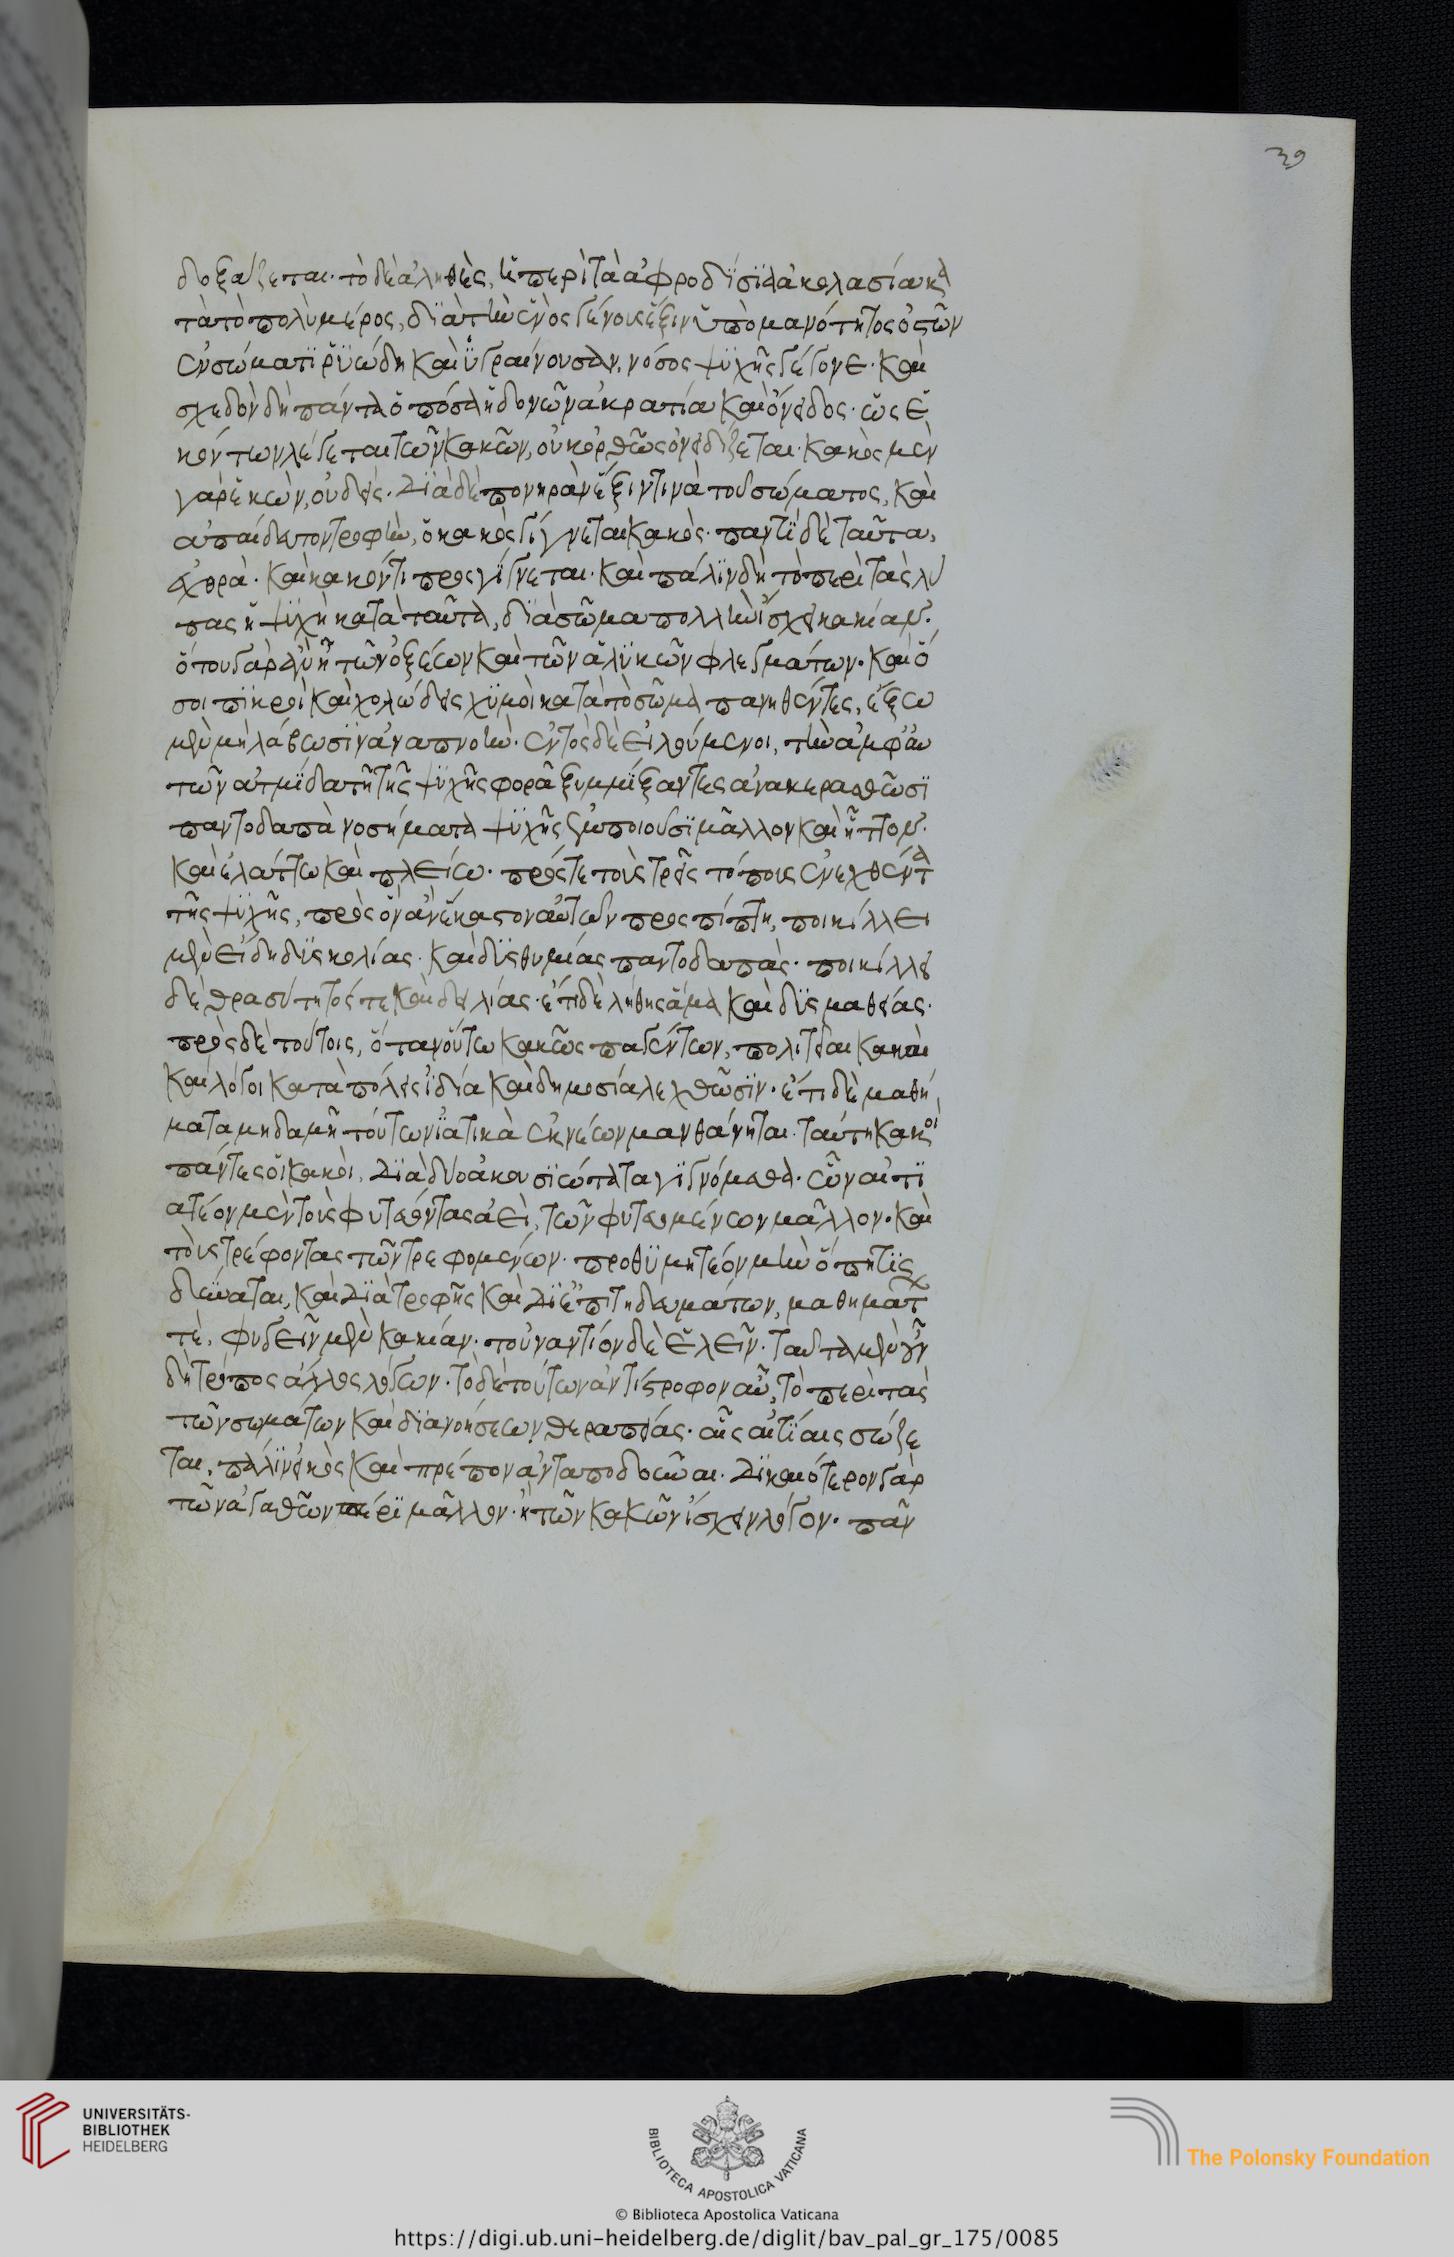 39
δοξάζεται· τὸ δὲ ἀληθὲς, ἡ περὶ τὰ ἀφροδίσια ἀκολασία κα
τὰ τὸ πολὺ μέρος, διὰ τὴν ἑνὸς γένους ἕξιν ὑπὸ μανότητος ὀστῶν
ἐν σώματι ῥυώδη καὶ ὑγραίνουσαν, νόσος ψυχῆς γέγονε· καὶ
σχεδὸν δὴ πάντα ὁπόσα ἡδονῶν ἀκρατία καὶ ὄνειδος· ὡς ἑ
κόντων λέγεται τῶν κακῶν, οὐκ ὀρθῶς ὀνειδίζεται· κακὸς μὲν
γὰρ ἑκὼν, οὐδείς· διὰ δὲ πονηρὰν ἕξιν τινὰ τοῦ σώματος, καὶ
ἀπαίδευτον τροφὴν, ὁ κακὸς γίγνεται κακός· παντὶ δὲ ταῦτα,
ἐχθρὰ· καὶ κακόν τι προσγίγνεται· καὶ πάλιν δὴ τὸ περὶ τὰς λύ
πας ἡ ψυχὴ κατὰ ταῦτα, διὰ σῶμα πολλὴν ἴσχει κακίαν·
ὅπου γὰρ ἂν ἢ τῶν ὀξέων καὶ τῶν ἁλυκῶν φλεγμάτων· καὶ ὅ
σοι πικροὶ καὶ χολώδεις χυμοὶ κατὰ τὸ σῶμα πλανηθέντες, ἔξω
μὲν μὴ λάβωσιν ἀναπνοὴν· ἐντὸς δὲ εἰλούμενοι, τὴν ἀμφ' αὑ
τῶν ἀτμίδα τῇ τῆς ψυχῆς φορᾷ ξυμμίξαντες ἀνακερασθῶσι
παντοδαπὰ νοσήματα ψυχῆς ἐμποιοῦσι μᾶλλον καὶ ἧττον·
καὶ ἐλάττω καὶ πλείω· πρός τε τοὺς τρεῖς τόπους ἐνεχθέντα
τῆς ψυχῆς, πρὸς ὃν ἂν ἕκαστον αὐτῶν προσπίπτῃ, ποικίλλει
μὲν εἴδη δυσκολίας· καὶ δυσθυμίας παντοδαπάς· ποικίλλει
δὲ θρασύτητός τε καὶ δειλίας· ἔτι δὲ λήθης ἅμα καὶ δυσμαθείας·
πρὸς δὲ τούτοις, ὅταν οὕτω κακῶς παγέντων, πολιτεῖαι κακαὶ
καὶ λόγοι κατὰ πόλεις ἰδίᾳ καὶ δημοσίᾳ λεχθῶσιν· ἔτι δὲ μαθή
ματα μηδαμῇ τούτων ἰατικὰ ἐκ νέων μανθάνηται· ταύτῃ κακοὶ
πάντες οἱ κακοὶ, διὰ δύο ἀκουσιώτατα γιγνόμεθα· ὧν αἰτι
ατέον μὲν τοὺς φυτεύοντας ἀεὶ, τῶν φυτευομένων μᾶλλον· καὶ
τοὺς τρέφοντας τῶν τρεφομένων· προθυμητέον μὴν ὅπῃ τις
δύναται, καὶ διὰ τροφῆς καὶ δι' ἐπιτηδευμάτων, μαθημάτων
τε, φυγεῖν μὲν κακίαν· τοὐναντίον δὲ ἑλεῖν· ταῦτα μὲν οὖν
δὴ τρόπος ἄλλος λόγων· τὸ δὲ τούτων ἀντίστροφον αὖ, τὸ περὶ τὰς
τῶν σωμάτων καὶ διανοήσεων θεραπείας· αἷς αἰτίαις σώζε
ται, πάλιν εἰκὸς καὶ πρέπον ἀνταποδοῦναι· δικαιότερον γὰρ
τῶν ἀγαθῶν πέρι μᾶλλον· ἢ τῶν κακῶν ἴσχειν λόγον· πᾶν
UNIVERSITÄTS-
BIBLIOTHEK
HEIDELBERG
BIBLIOTECA APOSTOLICA VATICANA
The Polonsky Foundation
© Biblioteca Apostolica Vaticana
https://digi.ub.uni-heidelberg.de/diglit/bav_pal_gr_175/0085